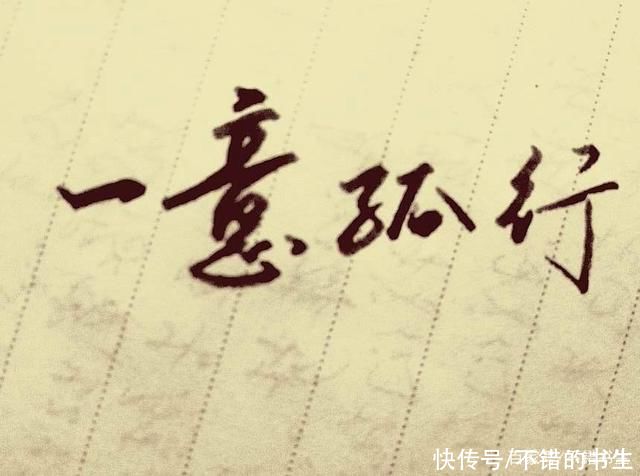 一意孤行
快传号/不错的书生